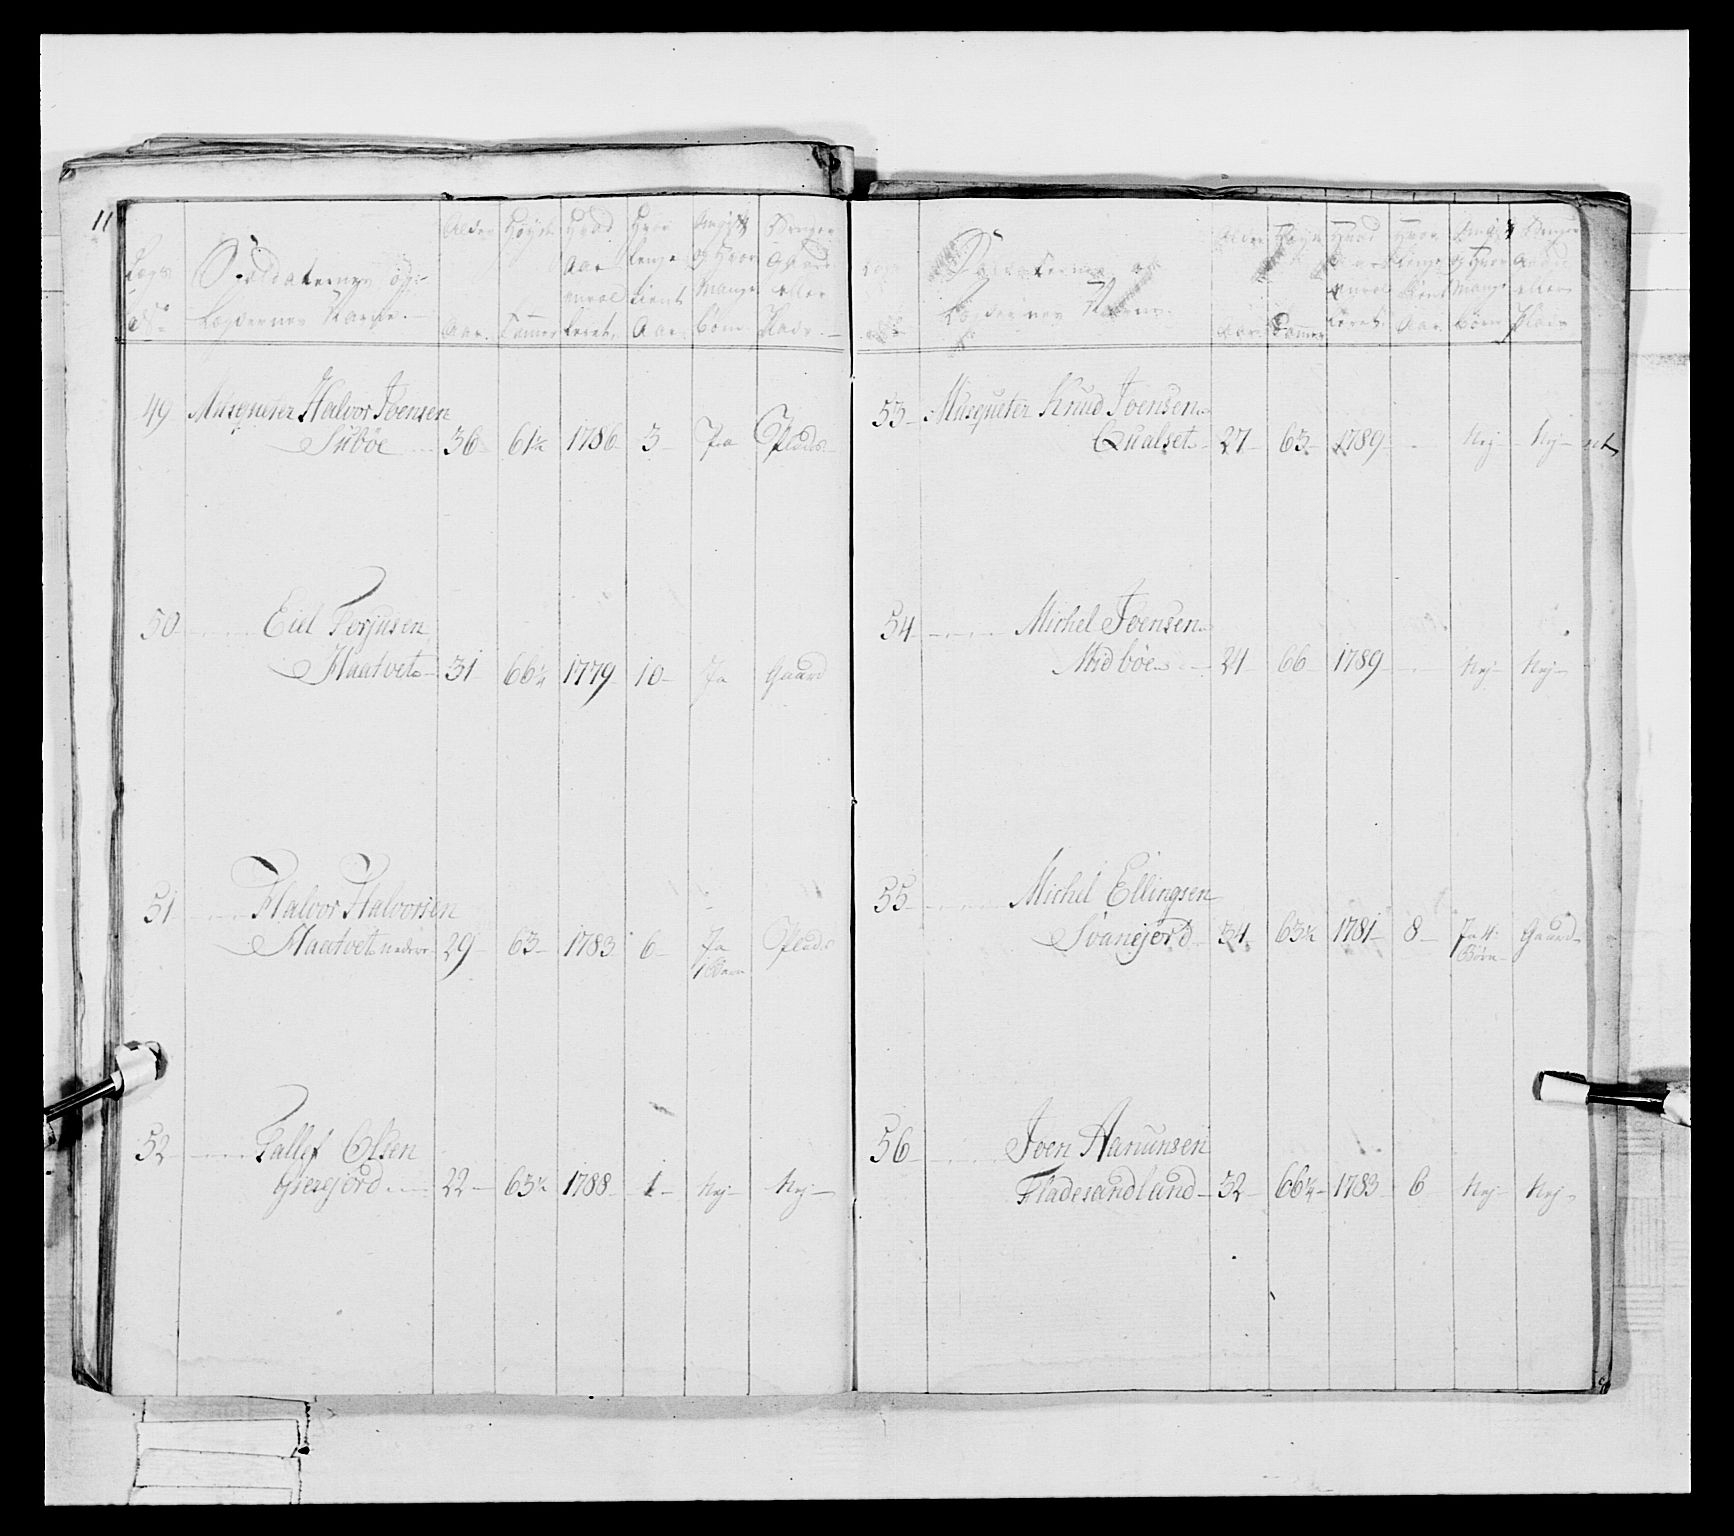 11
Lægd No
Soldaternes og
Lægdernes Navne.
Alder
Aar.
Høyde
Tommer
Hvad
Aar
enrol
leret.
Hvor
lenge
tient
Aar.
Gift
og Hvor
Mange
børn.
Bruger
Gaard
eller
Plads
49 Musqueter Halvor Joensen
Siibøe 36 61½ 1786 3 Ja Plads
50 Eiel Torjusen
Haatvet 31 66¼ 1779 10 Ja Gaard
51 Halvor Halvorsen
Haatvet nedre 29 63 1783 6 Ja Plads
1 Barn
52 Tallef Olsen
Gierejord 22 65½ 1788 1 Nej Nej
Soldaternes og
Lægdernes Navne.
Alder
Aar.
Høyde
Tommer
Hvad
Aar
enrol
leret.
Hvor
lenge
tient
Aar.
Gift
og Hvor
Mange
børn
Bruger
Gaard
eller
Plads
53 Musqueter Knud Joensen
Qualset 27 65 1789 Nej Nej
54 Michel Joensen
Midbøe 24 66 1789 Nej Nej
55 Michel Ellingsen
Svanejord 34 65½ 1781 8 Ja 4 Gaard
Børn
56 Joen Aanunsen
Fladesandlund 32 66¼ 1783 6 Nej Nej